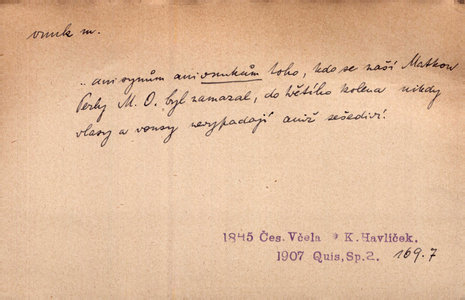 vnuk m.
.. ani synům ani vnukům toho, kdo se naší Matkou
Perly M. O. byl zamazal, do kolena nikdy
vlasy a vousy nevypadají aniž sešediví.
1845 Čes. Včela K. Havlíček.
1907 Quis, Sp. 2. 169.7